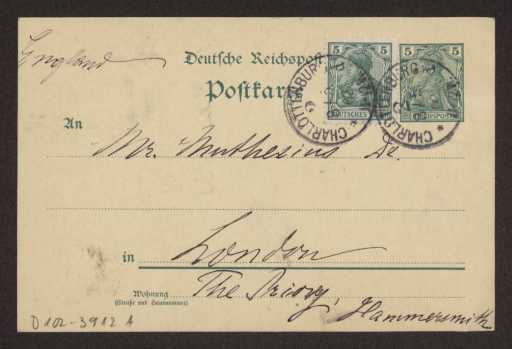 England
Deutsche Reichspost
Postkarte
5 5 5 5
DEUTSCHES
REICHSPOST
CHARLOTTENBURG
CHARLOTTENBURG
An
Mr. Muthesius Dr.
in London
Wohnung
(Straße und Hausnummer)
The Priory,
Hammersmith
D 102-3912 A